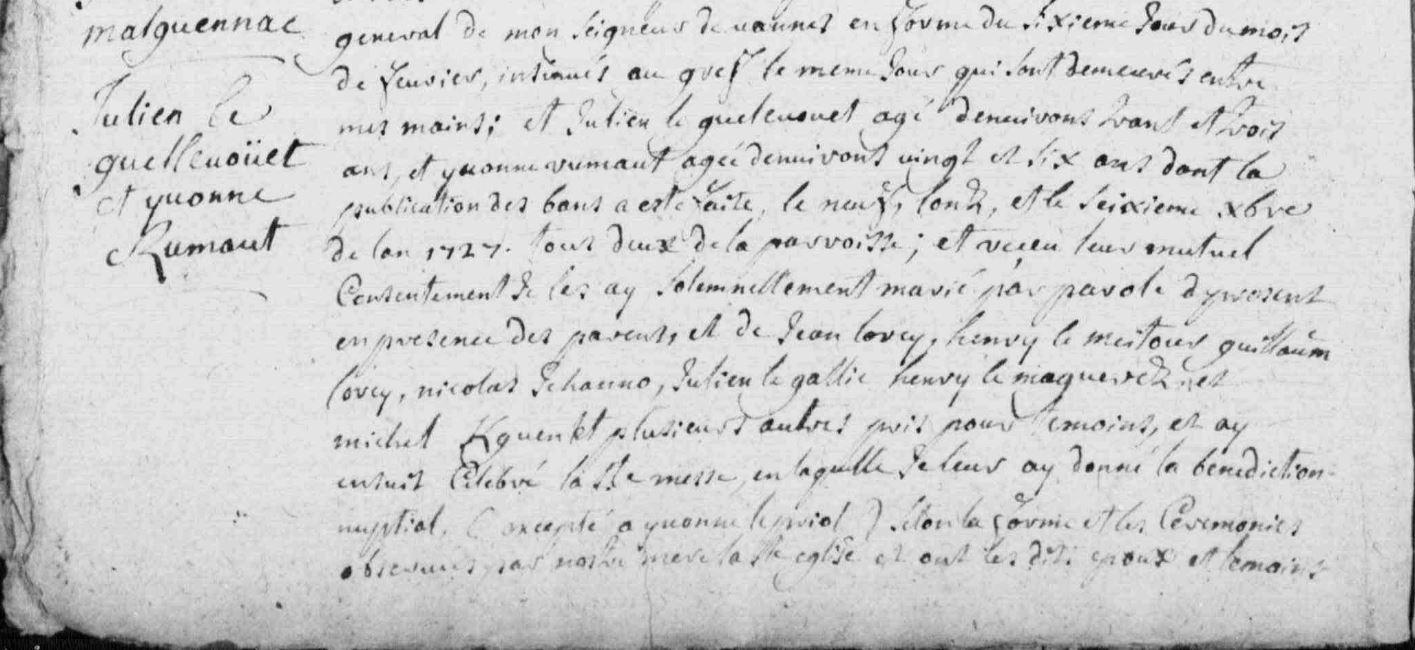 malguennac
Julien le
quellenoüet
et yvonne
Rumaut
general de mon seigneur de vannes en forme du sixieme jour du mois
de fevrier, insinués au gref le meme jour qui sont demeurés entre
mes mains; et Julien le quelenouet agé denuirons trant et trois
ans, et yvonne rumaut agée denuirons vingt et six ans dont la
publication des bans a esté faite, le neuf, et le seixieme xbre
de lan 1727. tous deux de la parroisse; et receu leur mutuel
Consentement Je les ay solemnellement marié par parole de present
en presence des parents, et de Jean lorcy, henry le meitour guillaum
lorcy, nicolas Jehanno, Julien le gallic henry le et
michel Kguen et plusieurs autres pris pour temoins, et ay
ensuit Celebré la Ste messe, en laquelle Je leur ay donné la benediction
nuptial, (excepté a yvonne le priol) selon la forme et les Ceremonies
observees par nostre mere la Ste eglise et ont les dits epoux et temoins